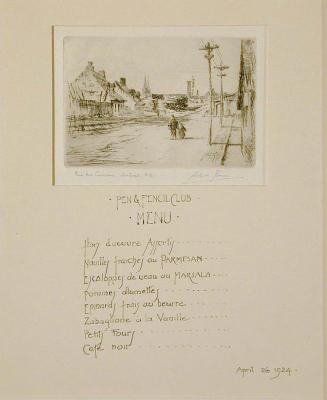 · PEN & PENCIL CLUB ·
· MENU ·
Hors d'oeuvre Assortis
Nouilles fraîches au PARMESAN
Escaloppes de veau au MARSALA
Pommes allumettes
Epinards frais au beurre
Zabaglione à la Vanille
Petits Fours
Café noir
April 26 1924.